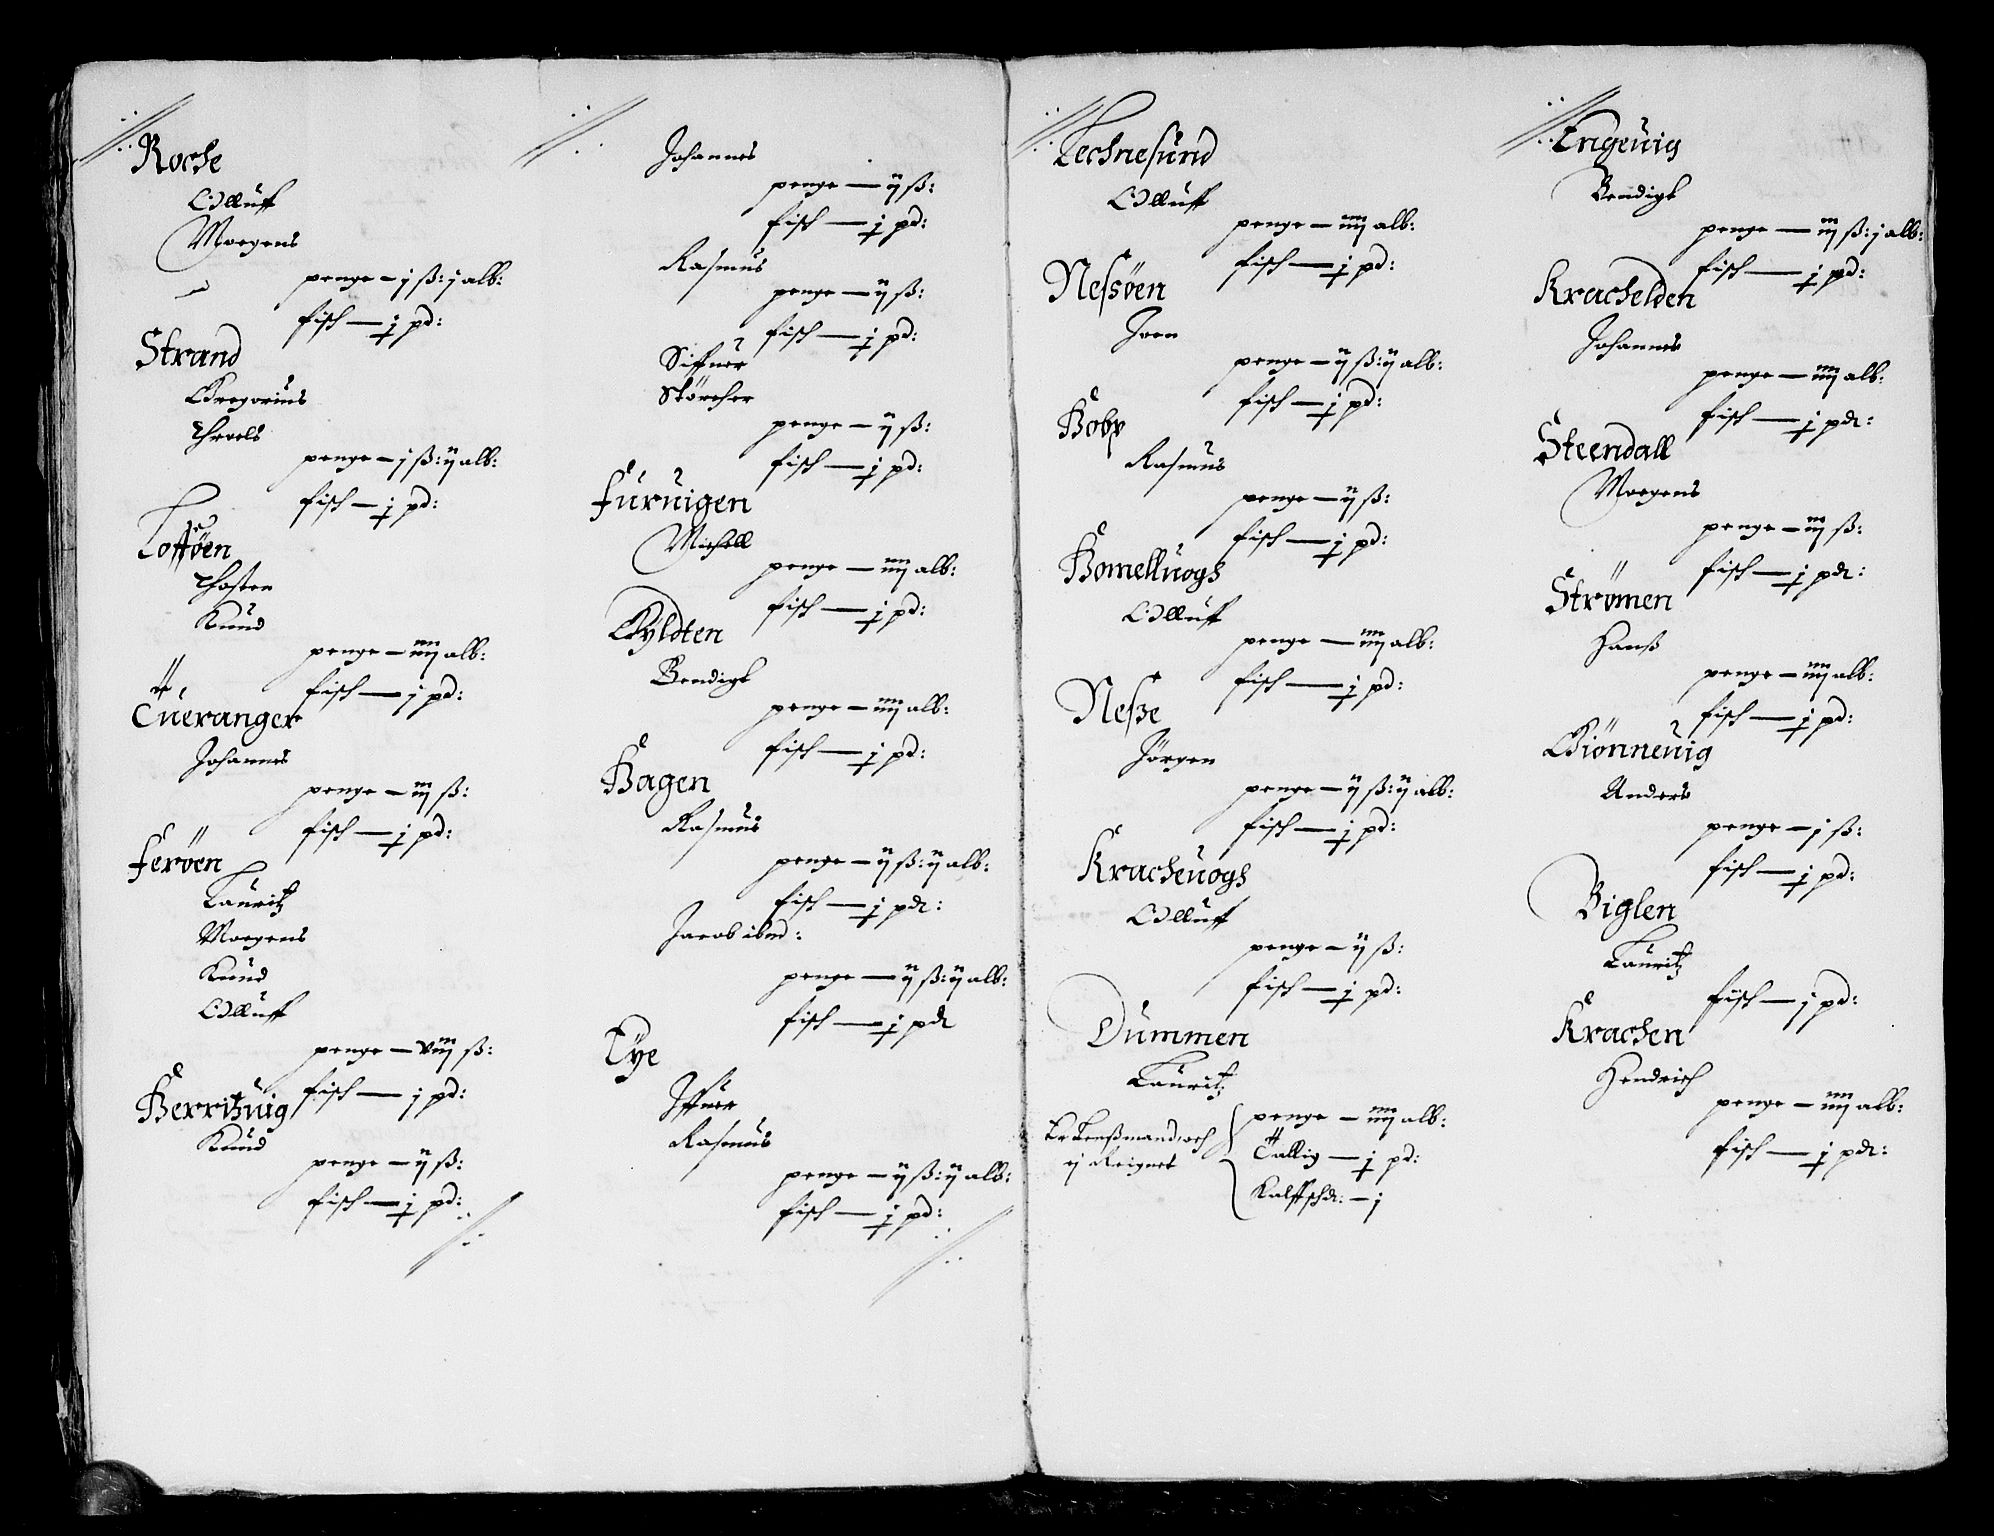 Roche
Olluff
Moegens
penge – j ß: j alb:
fisch — j pd:
Strand
Gregorius
Throels
penge – j ß: ij alb:
fisch – j pd:
Lofføen
Thosten
Knud
penge – iiij alb:
fisch — j pd:
Tueranger
Johannes
penge – iij ß:
fisch — j pd:
Ferøen
Lauritz
Moegens
Knud
Olluff
penge – viij ß:
fisch — j pd:
Berritzuig
Knud
penge – ij ß:
fisch — j pd:
Johannes
penge — ij ß:
fisch — j pd:
Rasmus
penge — ij ß:
fisch — j pd:
Siffuer
Størcher
penge – ij ß:
fisch — j pd:
Furuigen
Michell
penge – iiij alb:
fisch — j pd:
Gyldten
Bendigt
penge – iiij alb:
fisch — j pd:
Bagen
Rasmus
penge – ij ß: ij alb:
fisch — j pd:
Jacob ibm:
penge — ij ß: ij alb:
fisch — j pd
Tye
Iffuer
Rasmus
penge – ij ß: ij alb:
fisch — j pd:
Technesund
Olluff
penge – iiij alb:
fisch — j pd:
Nessøen
Joen
penge – ij ß: ij alb:
fisch — j pd:
Boby
Rasmus
penge – ij ß:
fisch — j pd:
Bomelluogh
Olluff
penge — iiij alb:
fisch — j pd:
Nesze
Jørgen
penge – ij ß: ij alb:
fisch — j pd:
Kracheuogh
Olluff
penge – ij ß:
fisch — j pd:
Dummen
Lauritz
penge – iiij alb:
Tallig — j pd:
Kalffschd: – j
Engeuig
Bendigt
penge — iij ß: j alb:
fisch — j pd:
Krachelden
Johannes
penge – iiij alb:
fisch — j pd:
Steendall
Moegens
penge – iij ß:
fisch — j pd:
Strømen
Hanß
penge – iiij alb:
fisch — j pd:
Giønneuig
Anders
penge – j ß:
fisch — j pd:
Biglen
Lauritz
fisch — j pd:
Krachen
Hendrich
penge – iiij alb:
fisch — j pd: